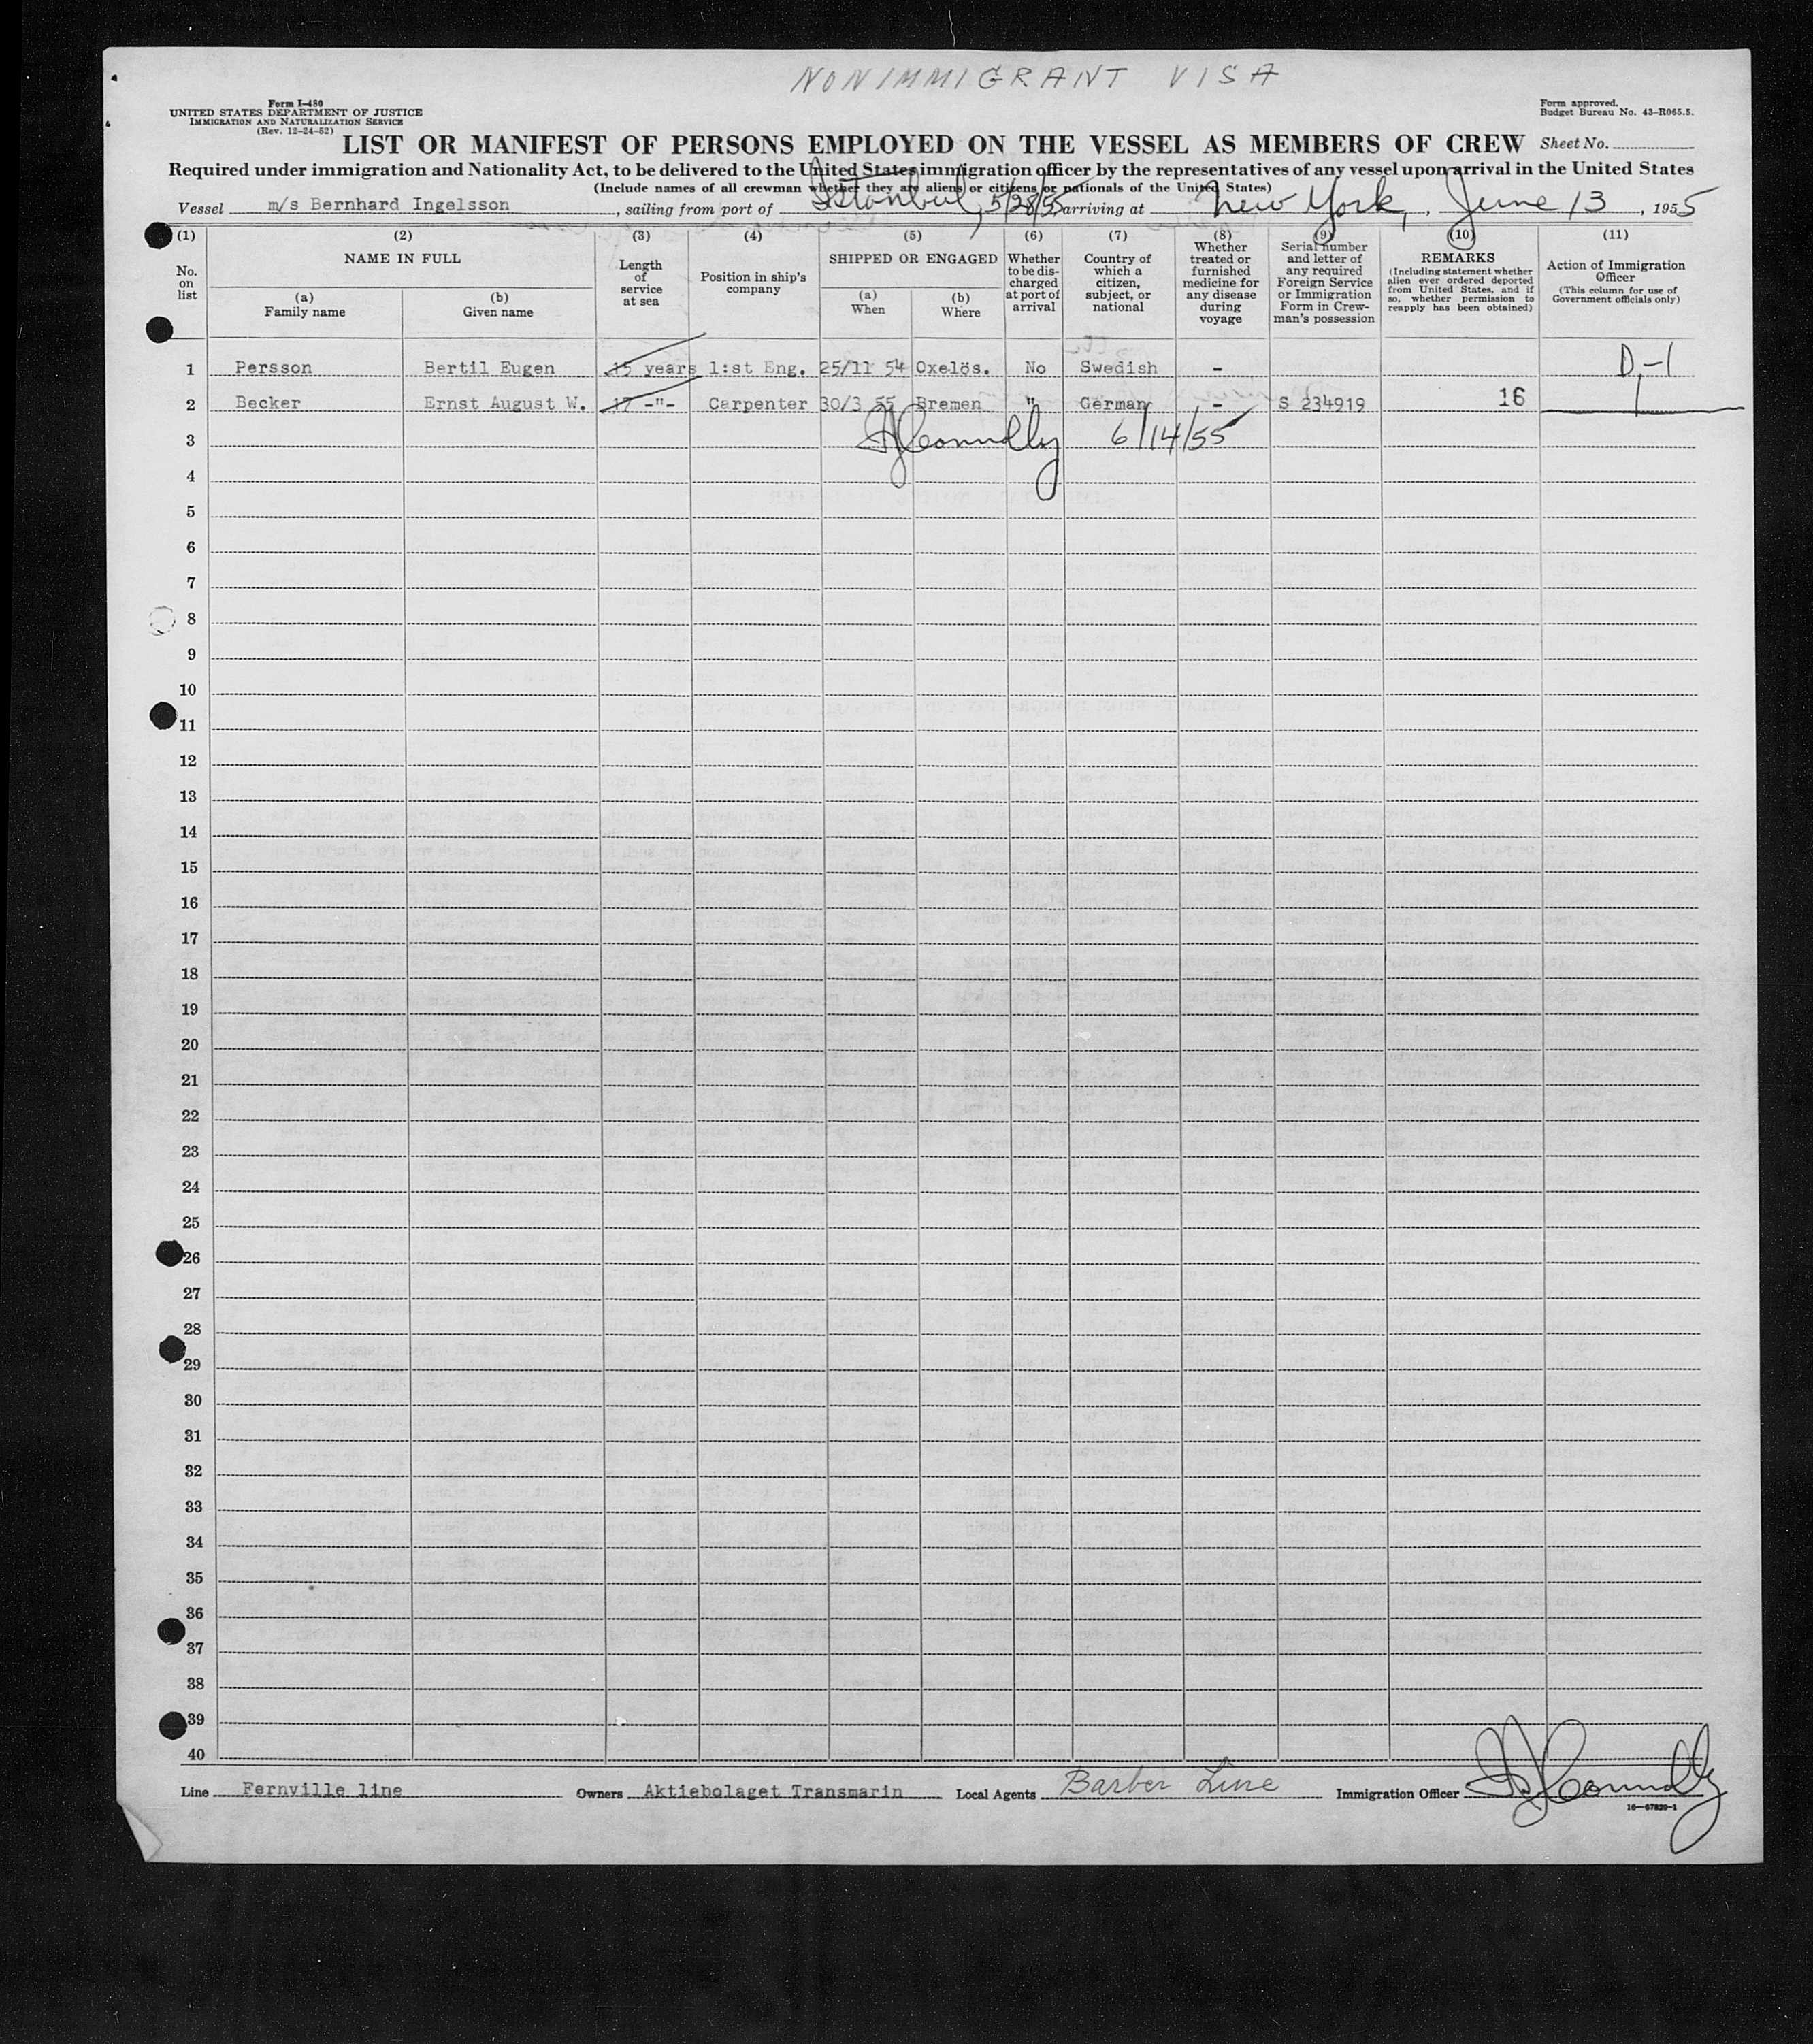 NONIMMIGRANT VISA
Form I-480
UNITED STATES DEPARTMENT OF JUSTICE
IMMIGRATION AND NATURALIZATION SERVICE
(Rev. 12-24-52)
Form approved.
Budget Bureau No. 43-R065.5.
LIST OR MANIFEST OF PERSONS EMPLOYED ON THE VESSEL AS MEMBERS OF CREW Sheet No.
Required under immigration and Nationality Act, to be delivered to the United States immigration officer by the representatives of any vessel upon arrival in the United States
(Include names of all crewman whether they are aliens or citizens or nationals of the United States)
Vessel m/s Bernhard Ingelsson, sailing from port of Istanbul, 5/28/55 arriving at New York, June 13, 1955
(1) (2) (3) (4) (5) (6) (7) (8) (9) (10) (11)
No. on list
NAME IN FULL
(a) Family name
(b) Given name
Length of service at sea
Position in ship's company
SHIPPED OR ENGAGED
(a) When
(b) Where
Whether to be discharged at port of arrival
Country of which a citizen, subject, or national
Whether treated or furnished medicine for any disease during voyage
Serial number and letter of any required Foreign Service or Immigration Form in Crewman's possession
REMARKS
(Including statement whether alien ever ordered deported from United States, and if so, whether permission to reapply has been obtained)
Action of Immigration Officer
(This column for use of Government officials only)
1 Persson Bertil Eugen 15 years 1:st Eng. 25/11 54 Oxelös. No Swedish - D-1
2 Becker Ernst August W. 17 -"- Carpenter 30/3 55 Bremen " German - S 234919 16
3 Connolly 6/14/55
4
5
6
7
8
9
10
11
12
13
14
15
16
17
18
19
20
21
22
23
24
25
26
27
28
29
30
31
32
33
34
35
36
37
38
39
40
Line Fernville line Owners Aktiebolaget Transmarin Local Agents Barber Line Immigration Officer Connolly
16-67829-1